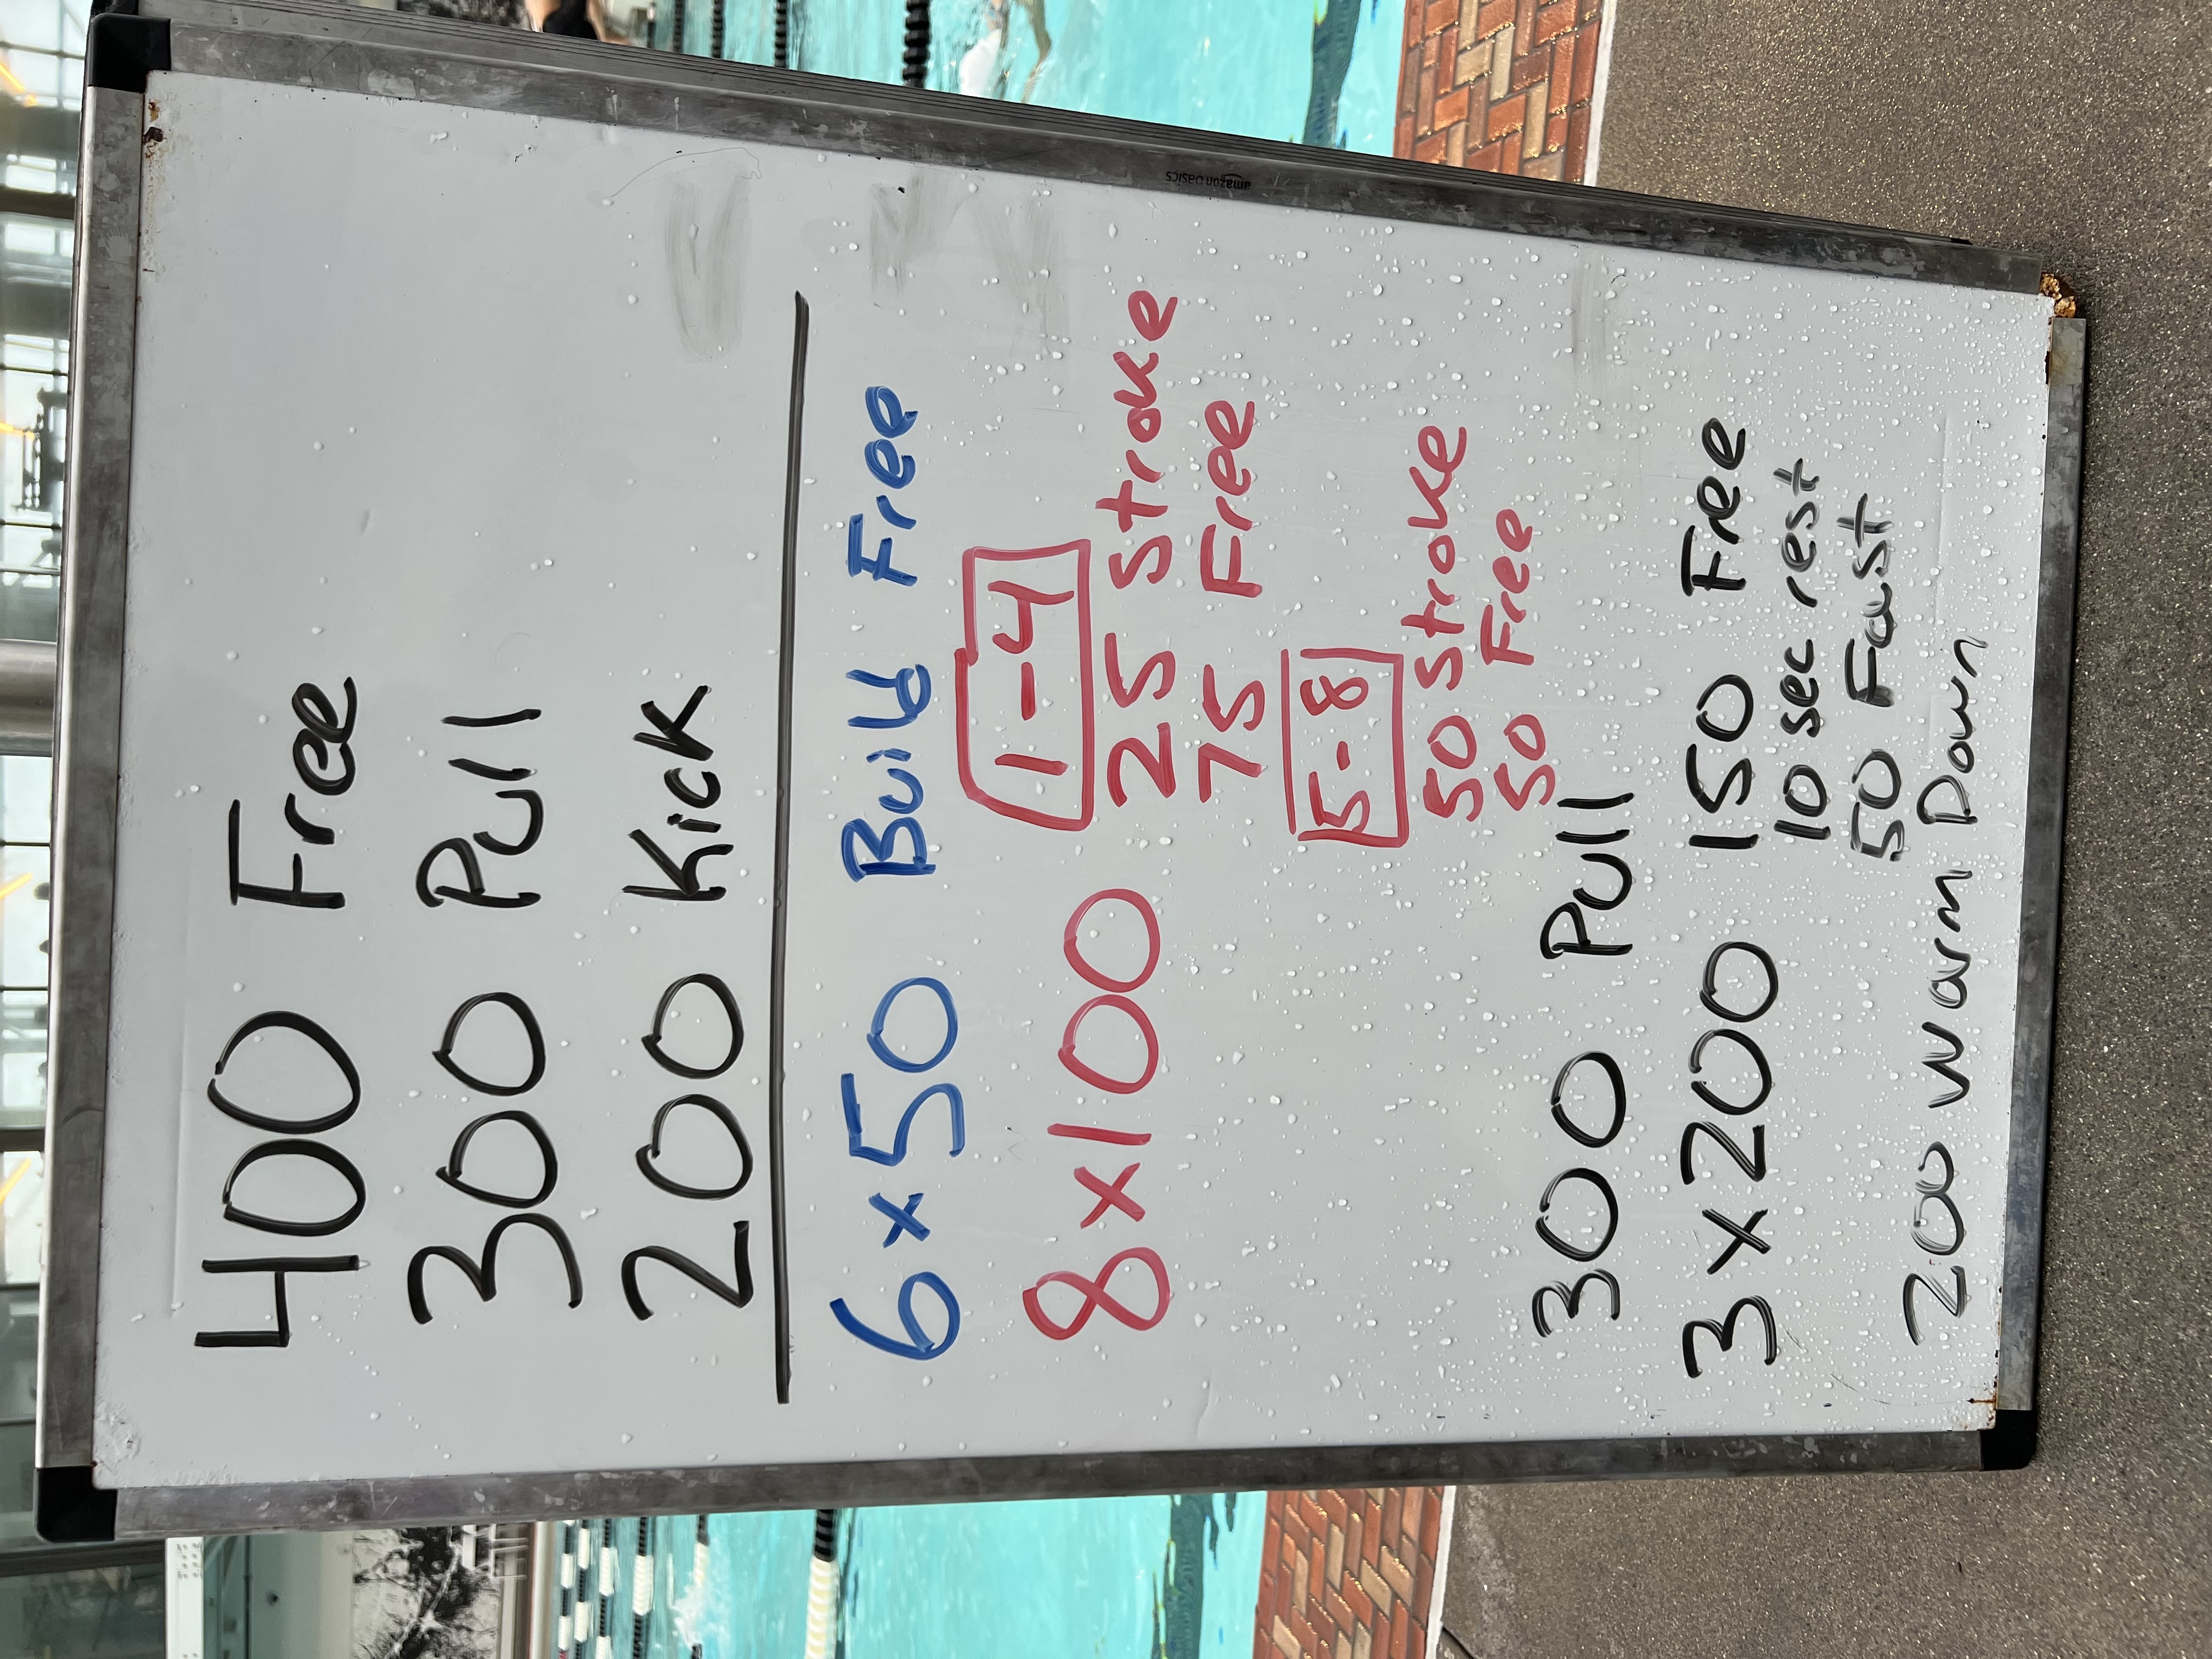 400 Free
300 Pull
200 Kick
6x50 Build Free
8x100 1-4
25 Stroke
75 Free
5-8
50 Stroke
50 Free
300 Pull
3x200 150 Free
10 sec rest
50 Fast
200 Warm Down
amazon basics